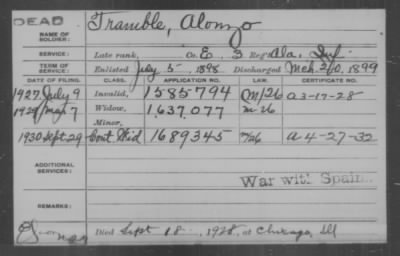 DEAD
NAME OF SOLDIER: Tramble, Alonzo
SERVICE: Late rank, Co. E, 3 Reg't Ala, Inf.
TERM OF SERVICE: Enlisted July 5, 1898 Discharged Mch 20, 1899
DATE OF FILING. CLASS. APPLICATION NO. LAW. CERTIFICATE NO.
1927 July 9 Invalid, 1585794 M/26 a 3-17-28
1929 Mar 7 Widow, 1,637,077 M-26
Minor,
1930 Sept. 29 Cont. Wid 1689345 a 4-27-32
ADDITIONAL SERVICES:
War with Spain.
REMARKS:
Died Sept 18, 1928, at Chicago, Ill